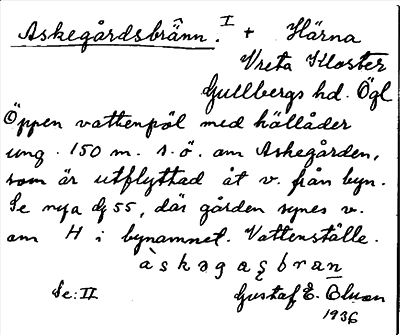 Askegårdsbrånn. I + Härna
Vreta Kloster
Gullbergs hd. Ögl
Öppen vattenpöl med källåder
ung. 150 m. s.ö. om Askegården,
som är utflyttad åt v. från byn.
Se nya dj 55, där gården synes v.
om H i bynamnet. Vattenställe.
àskəgaʂbran
Se: II Gustaf E. Olson
1936